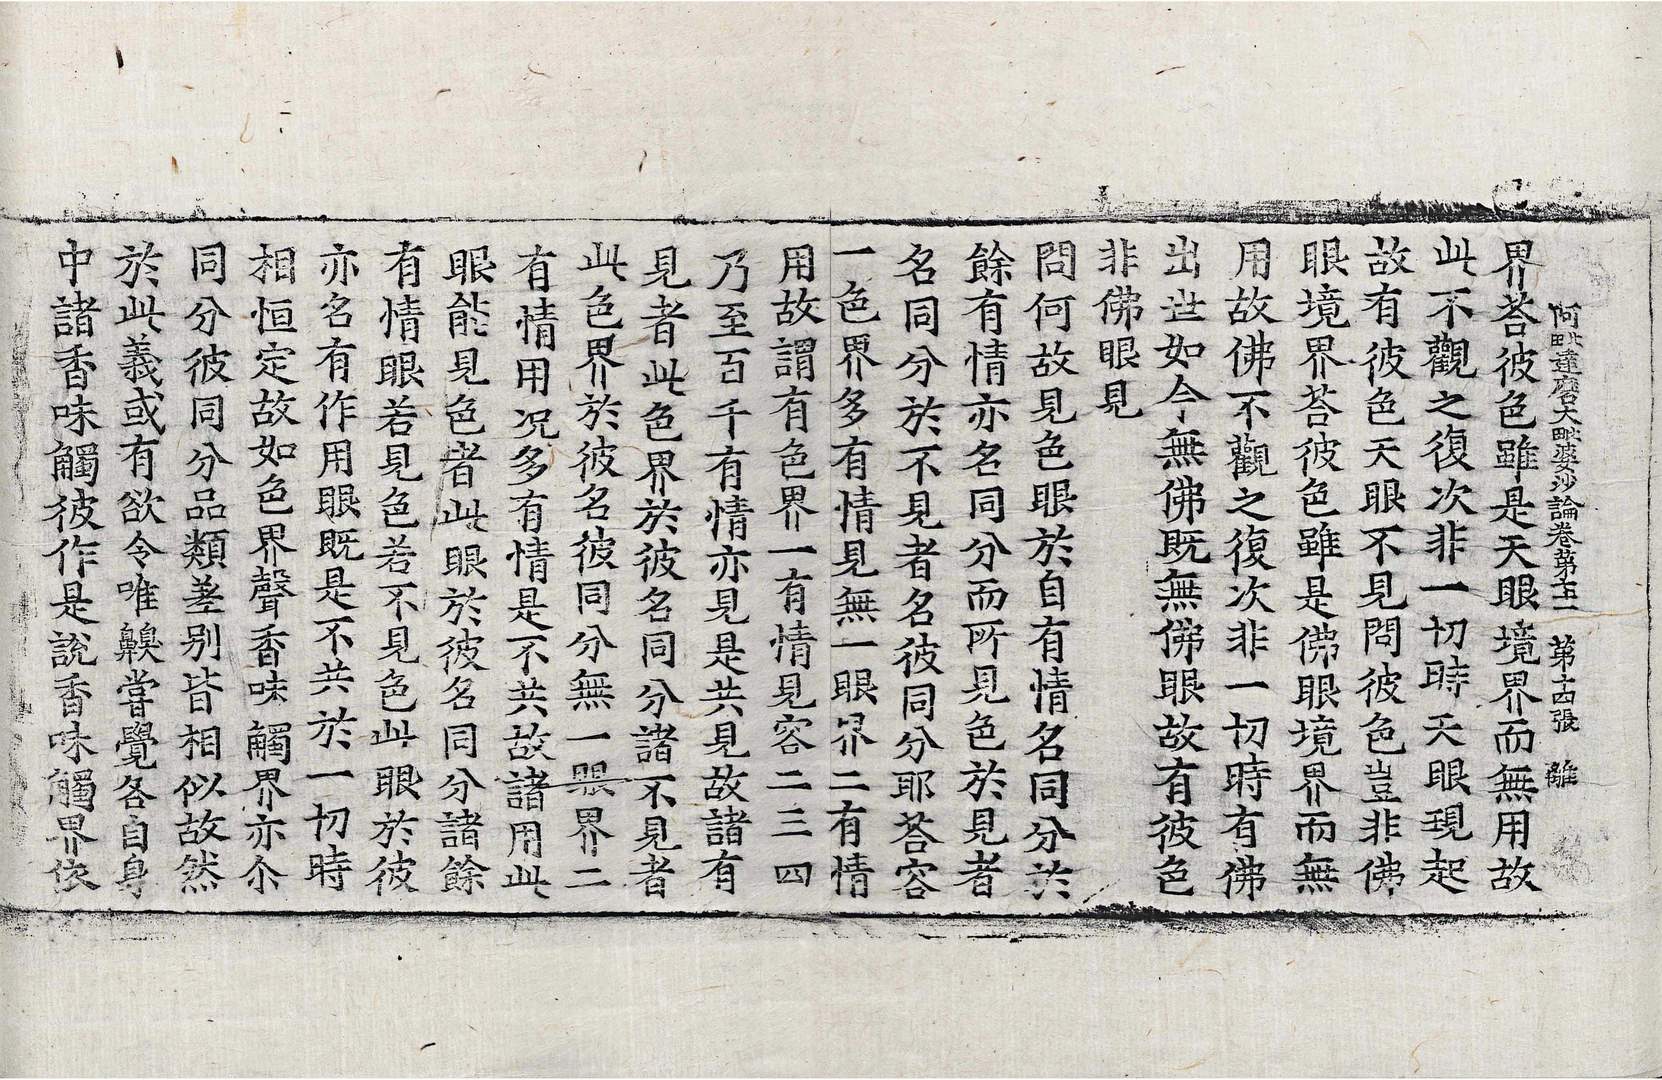 阿毗達磨大毗婆沙論卷第七十一 第十四張 離
界荅彼色雖是天眼境界而無用故
此不觀之復次非一切時天眼現起
故有彼色天眼不見問彼色豈非佛
眼境界荅彼色雖是佛眼境界而無
用故佛不觀之復次非一切時有佛
出世如今無佛既無佛眼故有彼色
非佛眼見
問何故見色眼於自有情名同分於
餘有情亦名同分而所見色於見者
名同分於不見者名彼同分耶荅容
一色界多有情見無一眼界二有情
用故謂有色界一有情見容二三四
乃至百千有情亦見是共見故諸有
見者此色界於彼名同分諸不見者
此色界於彼名彼同分無一眼界二
有情用况多有情是不共故諸用此
眼能見色者此眼於彼名同分諸餘
有情眼若見色若不見色此眼於彼
亦名有作用眼既是不共於一切時
相恒定故如色界聲香味觸界亦尒
同分彼同分品類差别皆相似故然
於此義或有欲令唯齅嘗覺各自身
中諸香味觸彼作是說香味觸界依